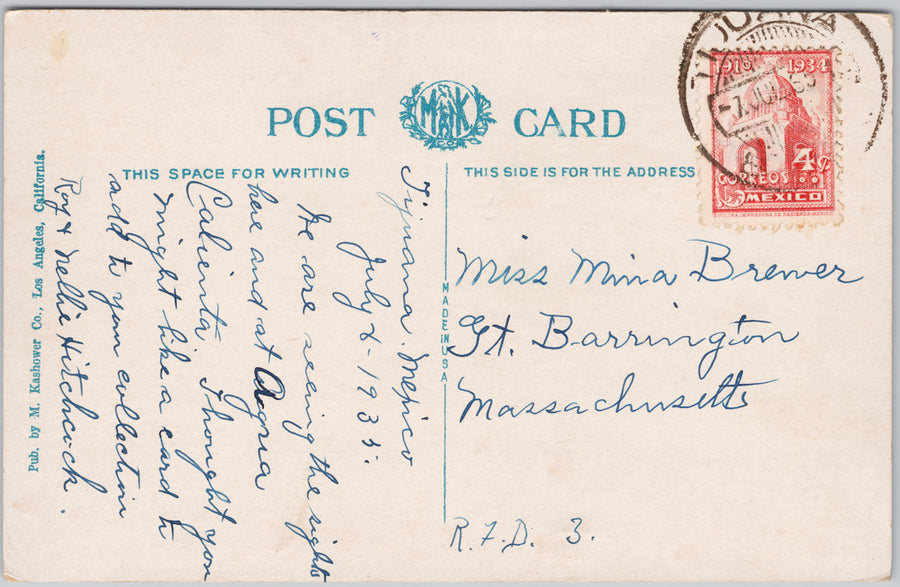 POST CARD
M K
CO.
THIS SPACE FOR WRITING
THIS SIDE IS FOR THE ADDRESS
TIJUANA
-7.JUL.35
1910 1934
4¢
CORREOS
MEXICO
Tijuana. Mexico
July 6-1935.
We are seeing the sights
here and at Agua
Calienta I thought you
might like a card to
add to your collection
Roy & Nellie Hitchcock.
MADE IN USA
Miss Mina Brewer
Gt. Barrington
Massachusetts
R.F.D. 3.
Pub. by M. Kashower Co., Los Angeles, California.